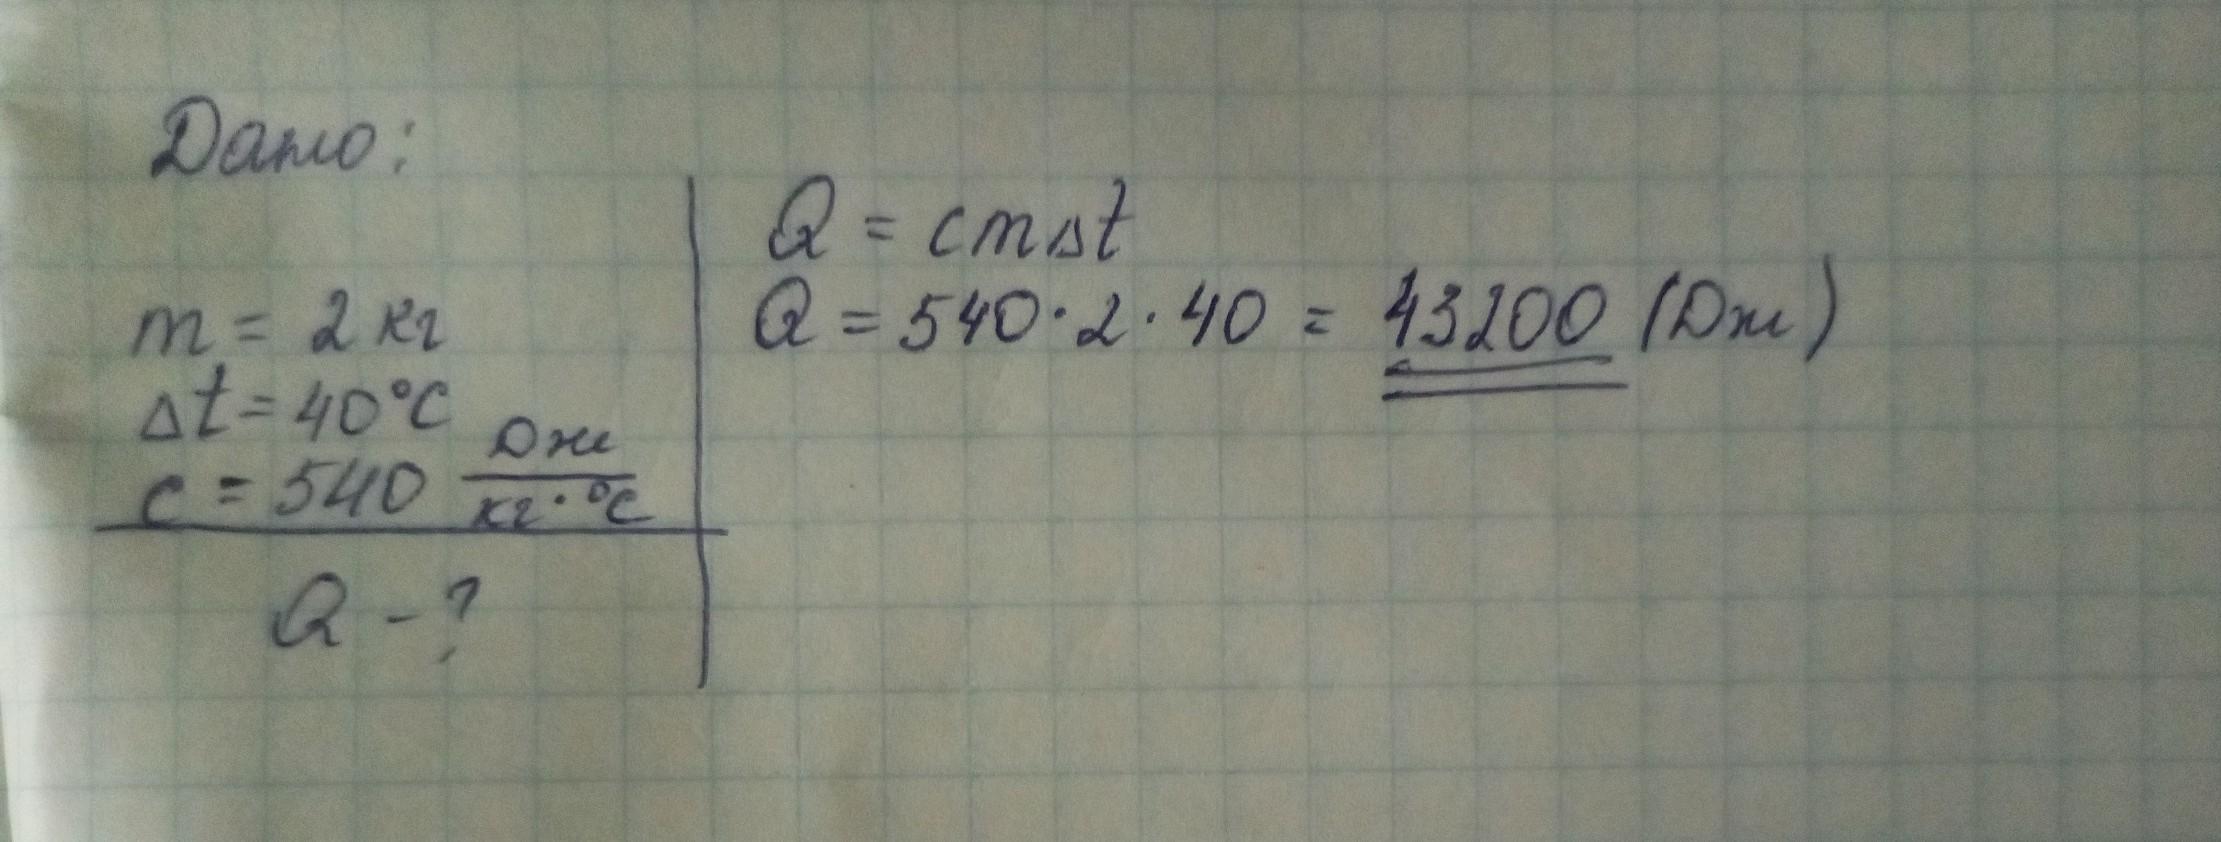 Дано:
m = 2 кг
Δt = 40°C
c = 540 Дж/кг·°C
Q - ?
Q = cmΔt
Q = 540·2·40 = 43200 (Дж)